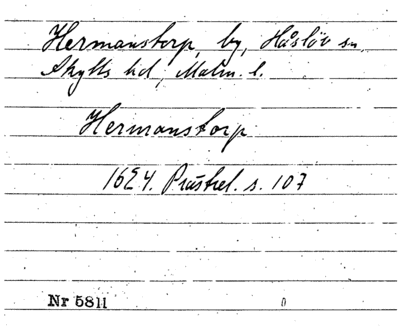 Hermanstorp, by, Håslöv sn,
Skytts hd, Malm. l.
Hermanstorp
1624. Prästrel. s. 107
Nr 5811